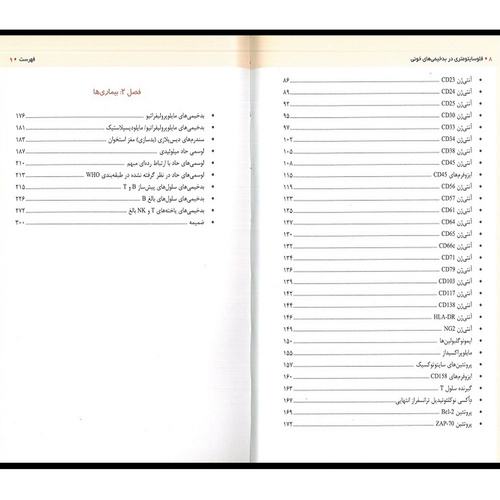 ۸ • فلوسایتومتری در بدخیمی‌های خونی
• آنتی‌ژن CD23 ۸۶
• آنتی‌ژن CD24 ۸۹
• آنتی‌ژن CD25 ۹۲
• آنتی‌ژن CD30 ۹۵
• آنتی‌ژن CD33 ۹۷
• آنتی‌ژن CD34 ۱۰۲
• آنتی‌ژن CD38 ۱۰۵
• آنتی‌ژن CD45 ۱۰۸
• ایزوفرم‌های CD45 ۱۱۵
• آنتی‌ژن CD56 ۱۱۹
• آنتی‌ژن CD57 ۱۲۳
• آنتی‌ژن CD61 ۱۲۵
• آنتی‌ژن CD64 ۱۲۷
• آنتی‌ژن CD65 ۱۳۰
• آنتی‌ژن CD66c ۱۳۲
• آنتی‌ژن CD71 ۱۳۴
• آنتی‌ژن CD79 ۱۳۶
• آنتی‌ژن CD103 ۱۳۹
• آنتی‌ژن CD117 ۱۴۲
• آنتی‌ژن CD138 ۱۴۴
• آنتی‌ژن HLA-DR ۱۴۶
• آنتی‌ژن NG2 ۱۴۹
• ایمونوگلبولین‌ها ۱۵۰
• مایلوپراکسیداز ۱۵۵
• پروتئین‌های سایتوتوکسیک ۱۵۷
• ایزوفرم‌های CD158 ۱۶۰
• گیرنده سلول T ۱۶۳
• دِاُکسی نوکلئوتیدیل ترانسفراز انتهایی ۱۶۷
• پروتئین Bcl-2 ۱۶۹
• پروتئین ZAP-70 ۱۷۲
فهرست • ۹
فصل ۲: بیماری‌ها
• بدخیمی‌های مایلوپرولیفراتیو ۱۷۶
• بدخیمی‌های مایلوپرولیفراتیو/ مایلودیسپلاستیک ۱۸۱
• سندرم‌های دیس‌پلازی (بدسازی) مغز استخوان ۱۸۳
• لوسمی حاد میلوئیدی ۱۸۷
• لوسمی‌های حاد با ارتباط رده‌ای مبهم ۲۰۹
• لوسمی‌های حاد در نظر گرفته نشده در طبقه‌بندی WHO ۲۱۳
• بدخیمی‌های سلول‌های پیش‌ساز B و T ۲۱۵
• بدخیمی‌های سلول‌های بالغ B ۲۲۶
• بدخیمی‌های یاخته‌های T و NK بالغ ۲۷۲
• ضمیمه ۳۰۰